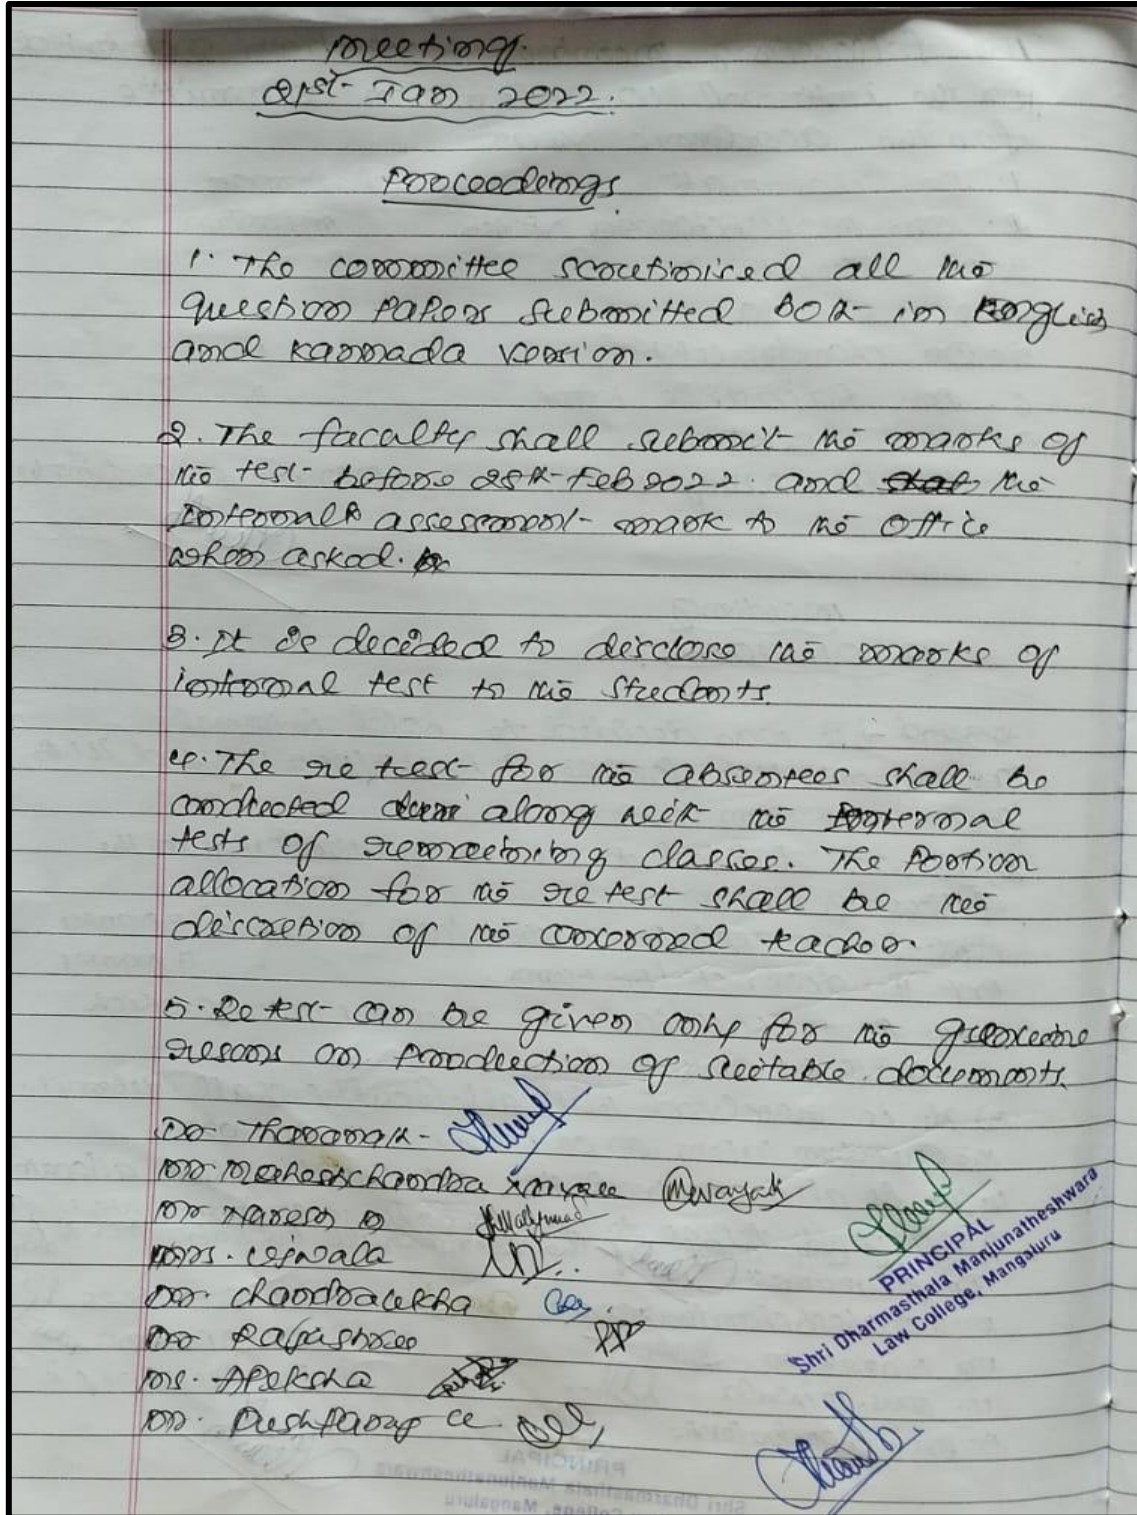 Meeting.
21st Jan 2022.
Proceedings.
1. The committee scrutinised all the
question papers submitted both in English
and Kannada version.
2. The faculty shall submit the marks of
the test before 28th Feb 2022. and the
Internal assessment mark to the office
when asked.
3. It is decided to disclose the marks of
internal test to the students.
4. The re test for the absentees shall be
conducted along with the internal
tests of remaining classes. The Portion
allocation for the re test shall be the
discretion of the concerned teacher.
5. Re test can be given only for the genuine
resons on production of suitable documents.
Dr Tharanath
Dr Maheshchandra Nayak
Dr Naresh
Mrs. Ujwala
Dr. Chandralekha
Dr Rajashree
Ms. Apeksha
Mr. Pushparaj
PRINCIPAL
Shri Dharmasthala Manjunatheshwara
Law College, Mangaluru